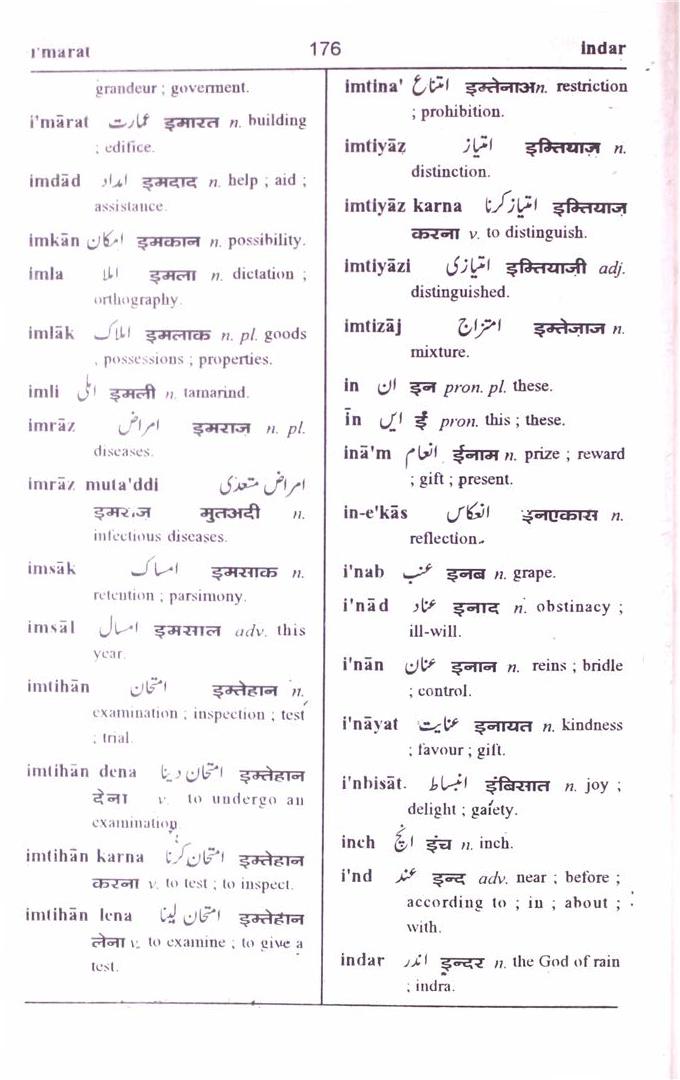 i'marat 176 indar
grandeur ; goverment.
i'mārat عمارت इमारत n. building
; edifice.
imdād امداد इमदाद n. help ; aid ;
assistance.
imkān امکان इमकान n. possibility.
imla املا इमला n. dictation ;
orthography.
imlāk املاک इमलाक n. pl. goods
, possessions ; properties.
imli املی इमली n. tamarind.
imrāz امراض इमराज़ n. pl.
diseases.
imrāz muta'ddi امراض متعدّی
इमराज़ मुतअदी n.
infectious diseases.
imsāk امساک इमसाक n.
retention ; parsimony.
imsāl امسال इमसाल adv. this
year.
imtihān امتحان इम्तेहान n.
examination ; inspection ; test
; trial.
imtihān dena امتحان دینا इम्तेहान
देना v. to undergo an
examination
imtihān karna امتحان کرنا इम्तेहान
करना v. to test ; to inspect.
imtihān lena امتحان لینا इम्तेहान
लेना v. to examine ; to give a
test.
imtina' امتناع इम्तेनाअn. restriction
; prohibition.
imtiyāz امتیاز इम्तियाज़ n.
distinction.
imtiyāz karna امتیاز کرنا इम्तियाज़
करना v. to distinguish.
imtiyāzi امتیازی इम्तियाज़ी adj.
distinguished.
imtizāj امتزاج इम्तेज़ाज n.
mixture.
in ان इन pron. pl. these.
īn ایں ईं pron. this ; these.
inā'm انعام ईनाम n. prize ; reward
; gift ; present.
in-e'kās انعکاس इनएकास n.
reflection.
i'nab عنب इनब n. grape.
i'nād عناد इनाद n. obstinacy ;
ill-will.
i'nān عنان इनान n. reins ; bridle
; control.
i'nāyat عنایت इनायत n. kindness
; favour ; gift.
i'nbisāt. انبساط इंबिसात n. joy ;
delight ; gaiety.
inch انچ इंच n. inch.
i'nd عند इन्द adv. near ; before ;
according to ; in ; about ;
with.
indar اندر इन्दर n. the God of rain
; indra.